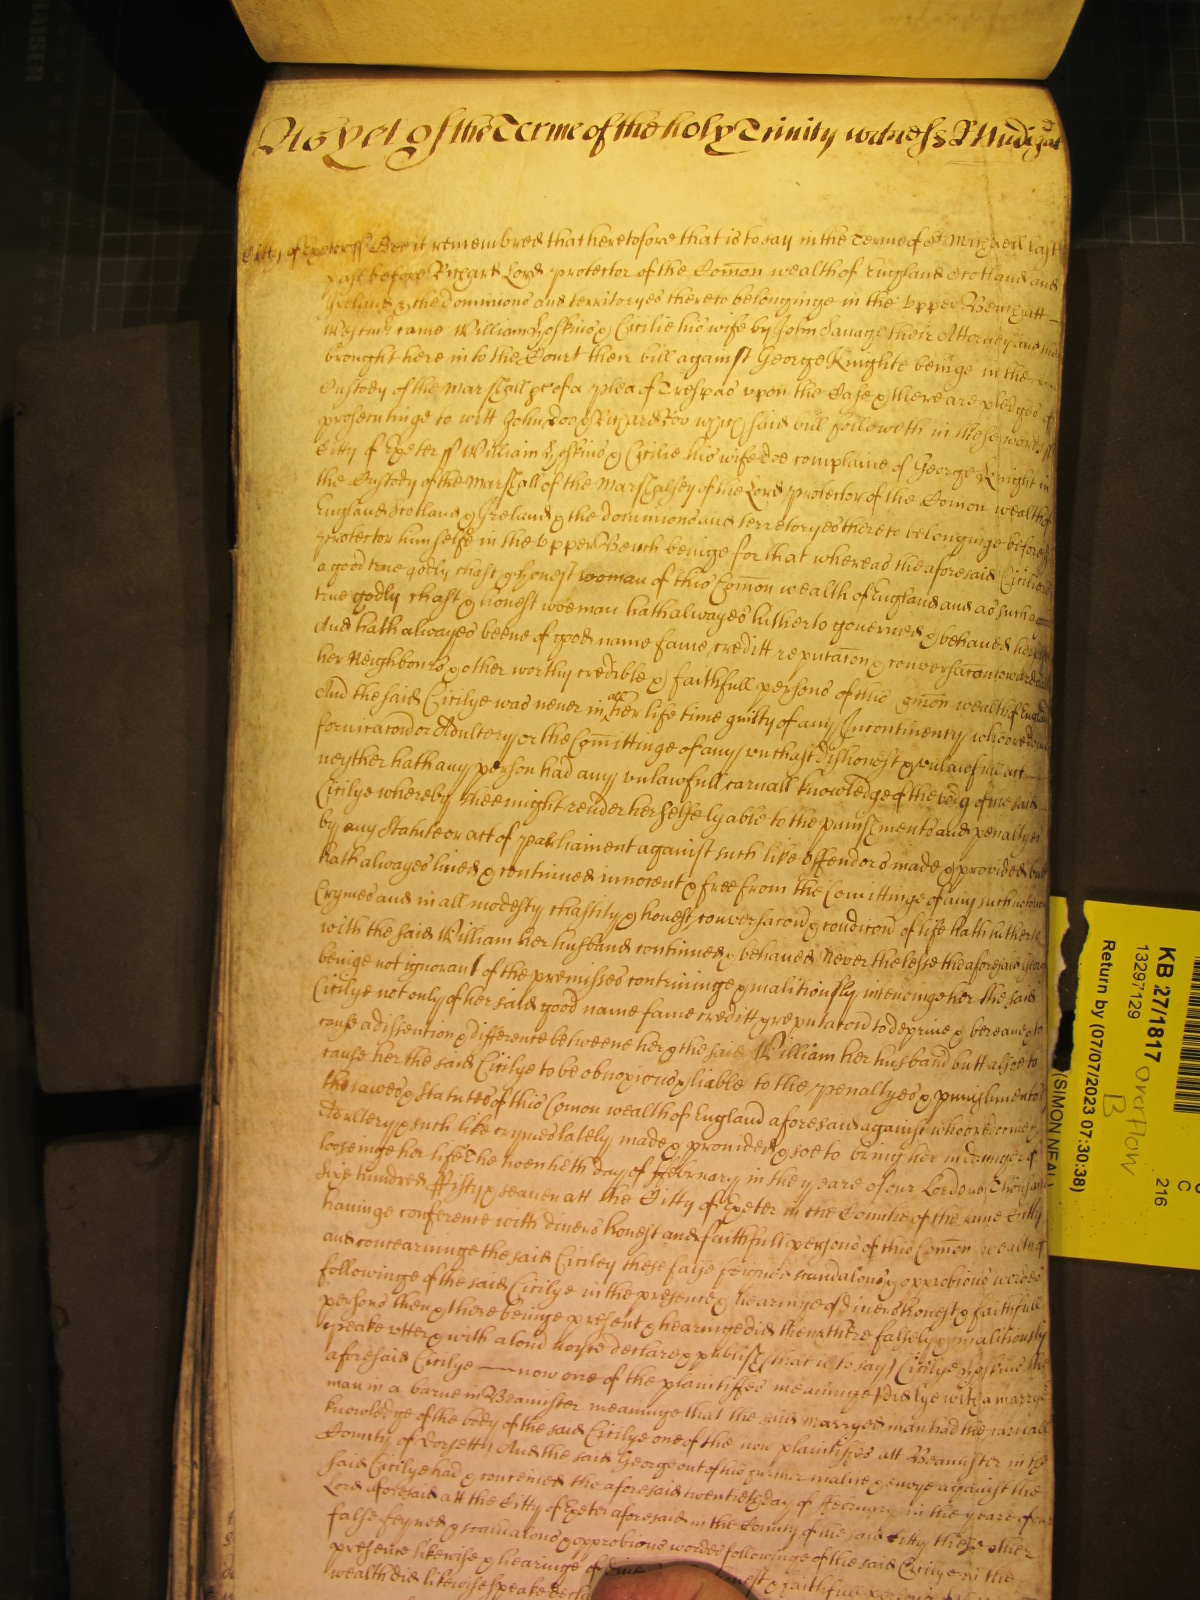 As yet of the Terme of the holy Trinity witnes R Nudigat
Citty of Exeter ss Bee it remembred that heretofore that is to say in the Terme of St Michaell last
past before Richard Lord protector of the Com̄on wealth of England Scotland and
Ireland & the dominions and territoryes thereto belonginge in the Upper Bench att
Westmr came William Hoskins & Cicilie his wife by John Savage their Attorney and
brought here into the Court their bill against George Knighte beinge in the
Custody of the Marshall &c of a plea of Trespas upon the Case & there are pledges of
prosecutinge to witt John Doo & Richard Roo which said bill followeth in these words ss
Citty of Exeter ss William Hoskins & Cicilie his wife doe complaine of George Knight in
the Custody of the Marshall of the Marshalsey of the Lord protector of the Comon wealth of
England Scotland & Ireland & the dominions and terretoryes thereto belonginge before
protector himselfe in the Upper Bench beinge for that whereas the aforesaid Cicilie
a good true godly chast & honest woman of this Com̄on wealth of England and as such a
true godly chast & honest woeman hath alwayes hitherto governed & behaved her
And hath alwayes beene of good name fame creditt reputac̄on & conversac̄on towards
her Neighbours & other worthy credible & faithfull persons of this Com̄on wealth of England
And the said Cicilye was never in all her life time guilty of any Incontinency whoredome
fornicacon or Adultery or the Com̄ittinge of any unchast dishonest & unlawfull act
neyther hath any person had any unlawfull carnall knowledge of the body of the said
Cicilye whereby shee might render her selfe lyable to the punishments and penaltyes
by any Statute or act of parliament against such like offendors made & provided but
hath alwayes lived & continued innocent & free from the Comittinge of any such
Crymes and in all modesty chastity & honest conversacon & condicon of life hath hitherto
with the said William her husband continued & behaved Never thelesse the aforesaid
beinge not ignorant of the premisses contrivinge & malitiously intendinge her the said
Cicilye not only of her said good name fame creditt & reputacon to deprive & bereave & to
cause a dissention & difference betweene her & the said William her husband butt alsoe to
cause her the said Cicilye to be obnoxious & liable to the penaltyes & punishments
the lawes & Statutes of this Comon wealth of England aforesaid against whoredome
Adultery & such like crymes lately made & provided & soe to bring her in daunger of
looseinge her life The twentieth day of ffebruary in the yeare of our Lord one Thousand
Sixe hundred ffifty & seaven att the Citty of Exeter in the Countie of the same Citty
havinge conference with divers honest and faithfull persons of this Com̄on wealth of
and concearninge the said Ciciley these false feigned scandalous & opprobious wordes
followinge of the said Cicilye in the presence & hearinge of divers honest & faithfull
persons then & there beinge present & hearinge did then & there falsely & malitiously
speake utter & with a loud voyce declare & publish (that is to say) Cicilye Hoskins the
aforesaid Cicilye now one of the plaintiffes meaninge did lye with a marryed
man in a barne in Beamister meaninge that the said marryed man had the carnall
knowledge of the body of the said Cicilye one of the now plaintiffes att Beamister in the
County of Dorsett And the said George out of his further malice & envye against the
said Cicilye had & conceived the aforesaid twentieth day of ffebruary in the yeare of our
Lord aforesaid att the Citty of Exeter aforesaid in the County of the said Citty these other
false feyned & scandalous & opprobious wordes followinge of the said Cicilye in the
presence likewise & hearinge of honest & faithfull
wealth did likewise speake
KB 27/1817 overflow
B
13297129
Return by (07/07/2023 07:30:38)
(SIMON NEAL)
C
216